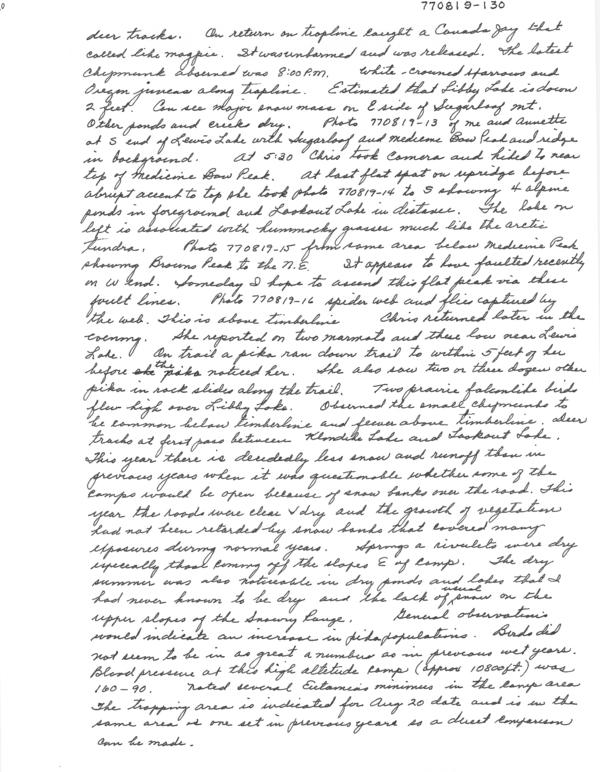 770819-130
deer tracks. On return on trapline caught a Canada Jay that
called like magpie. It was unharmed and was released. The latest
Chipmunk observed was 8:00 P.M. White-crowned sparrows and
Oregon juncos along trapline. Estimated that Libby Lake is down
2 feet. Can see major snow mass on E side of Sugarloaf mt.
Other ponds and creeks dry. Photo 770819-13 of me and Annette
at S end of Lewis Lake with Sugarloaf and Medicine Bow Peak and ridge
in background. At 5:30 Chris took camera and hiked to near
top of Medicine Bow Peak. At last flat spot on upridge before
abrupt accent to top she took photo 770819-14 to S showing 4 alpine
ponds in foreground and Lookout Lake in distance. The lake on
left is associated with hummocky grasses much like the arctic
tundra. Photo 770819-15 from same area below Medicine Peak
showing Browns Peak to the N.E. It appears to have faulted recently
on W end. Someday I hope to assend this flat peak via these
fault lines. Photo 770819-16 spider web and flies captured by
the web. This is above timberline Chris returned later in the
evening. She reported on two marmots and these low near Lewis
Lake. On trail a pika ran down trail to within 5 feet of her
before she the pika noticed her. She also saw two or three dozen other
pika in rock slides along the trail. Two prairie falconlike birds
flew high over Libby Lake. Observed the small chipmunks to
be common below timberline and fewer above timberline. Deer
tracks at first pass between Klondike Lake and Lookout Lake.
This year there is decidedly less snow and runoff than in
previous years when it was questionable whether some of the
camps would be open because of snow banks over the road. This
year the roads were clear & dry and the growth of vegetation
had not been retarded by snow banks that covered many
exposures during normal years. Springs & rivulets were dry
especially those coming off the slopes E of camp. The dry
summer was also noticeable in dry ponds and lakes that I
had never known to be dry and the lack of usual snow on the
upper slopes of the Snowy Range. General observations
would indicate an increase in pika populations. Birds did
not seem to be in as great a number as in previous wet years.
Blood pressure at this high altitude camp (approx 10800ft.) was
160-90. Noted several Eutamias minimus in the camp area
The trapping area is indicated for Aug 20 date and is in the
same area as one set in previous years so a direct comparison
can be made.